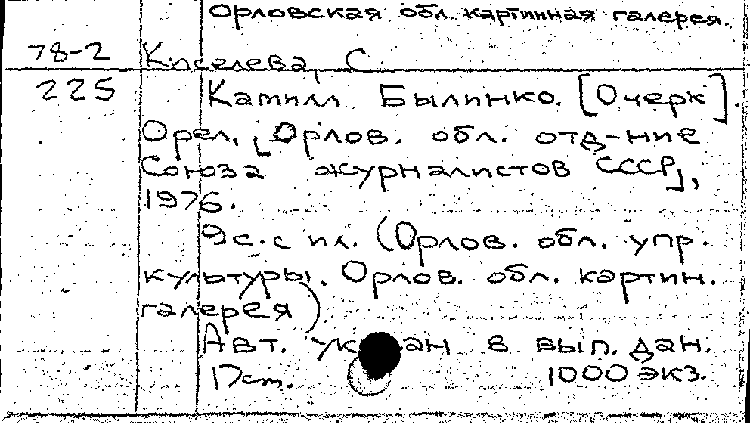 Орловская обл. картинная галерея.
78-2 Киселева, С.
225 Камилл Былинко. [Очерк].
Орел, [Орлов. обл. отд-ние
Союза журналистов СССР],
1976.
9 с. с ил. (Орлов. обл. упр.
культуры. Орлов. обл. картин.
галерея)
Авт. указан в вып. дан.
1000 экз.